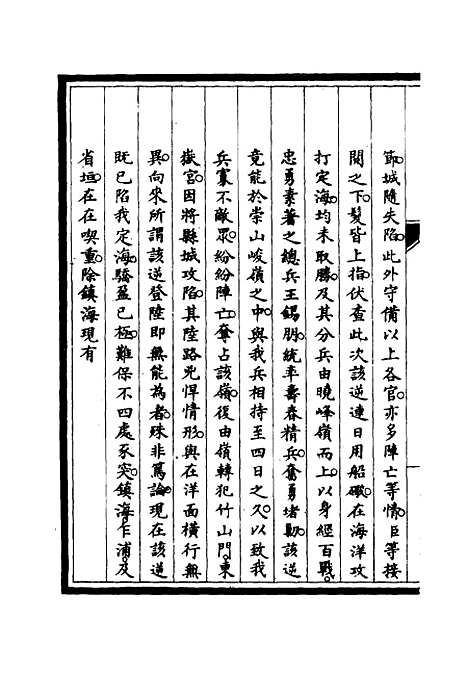 節城隨失陷此外守備以上各官亦多陣亡等情臣等接
閱之下髮皆上指伏查此次該逆連日用船礮在海洋攻
打定海均未取勝及其分兵由曉峰嶺而上以身經百戰
忠勇素著之總兵王錫朋統率壽春精兵奮勇堵勦該逆
竟能於崇山峻嶺之中與我兵相持至四日之久以致我
兵寡不敵眾紛紛陣亡奪占該嶺後由嶺轉犯竹山門東
嶽宮因將縣城攻陷其陸路兇悍情形與在洋面橫行無
異向來所謂該逆登陸即無能為者殊非篤論現在該逆
既已陷我定海驕盈已極難保不四處豕突鎮海乍浦及
省垣在在喫重除鎮海現有